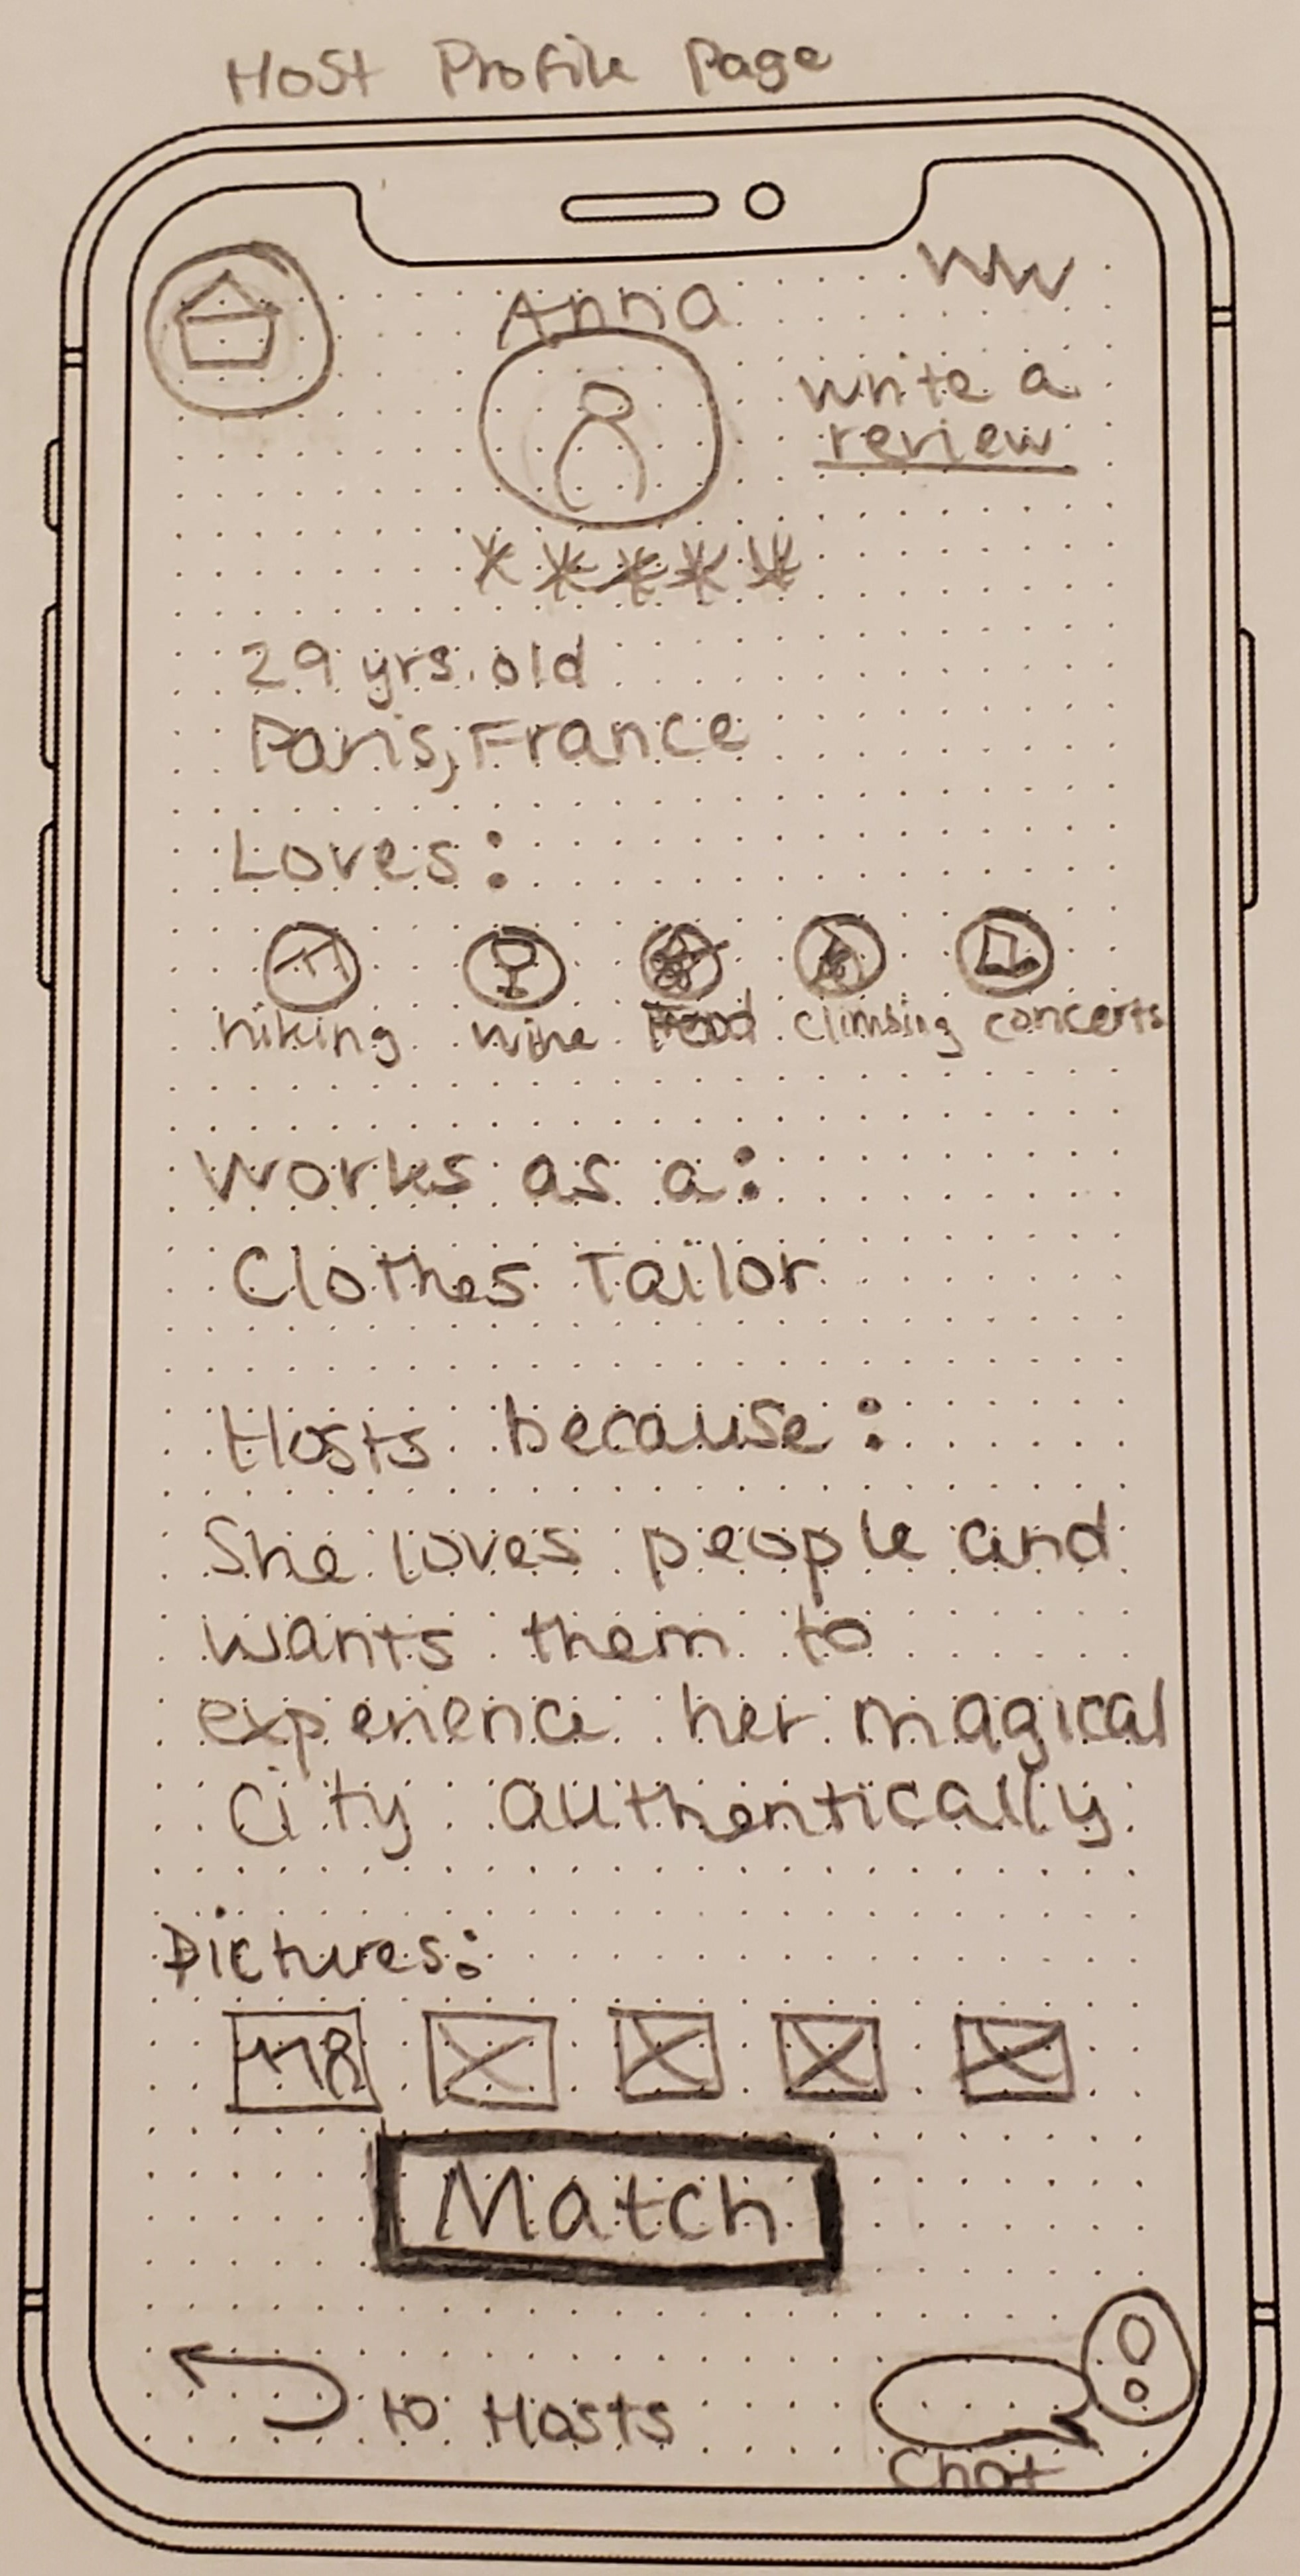 Host Profile Page
WW
Anna
write a
review
29 yrs. old
Paris, France
Loves:
hiking wine Food climbing concerts
Works as a:
Clothes Tailor
Hosts because:
She loves people and
wants them to
experience her magical
city authentically
Pictures:
Match
to Hosts
Chat